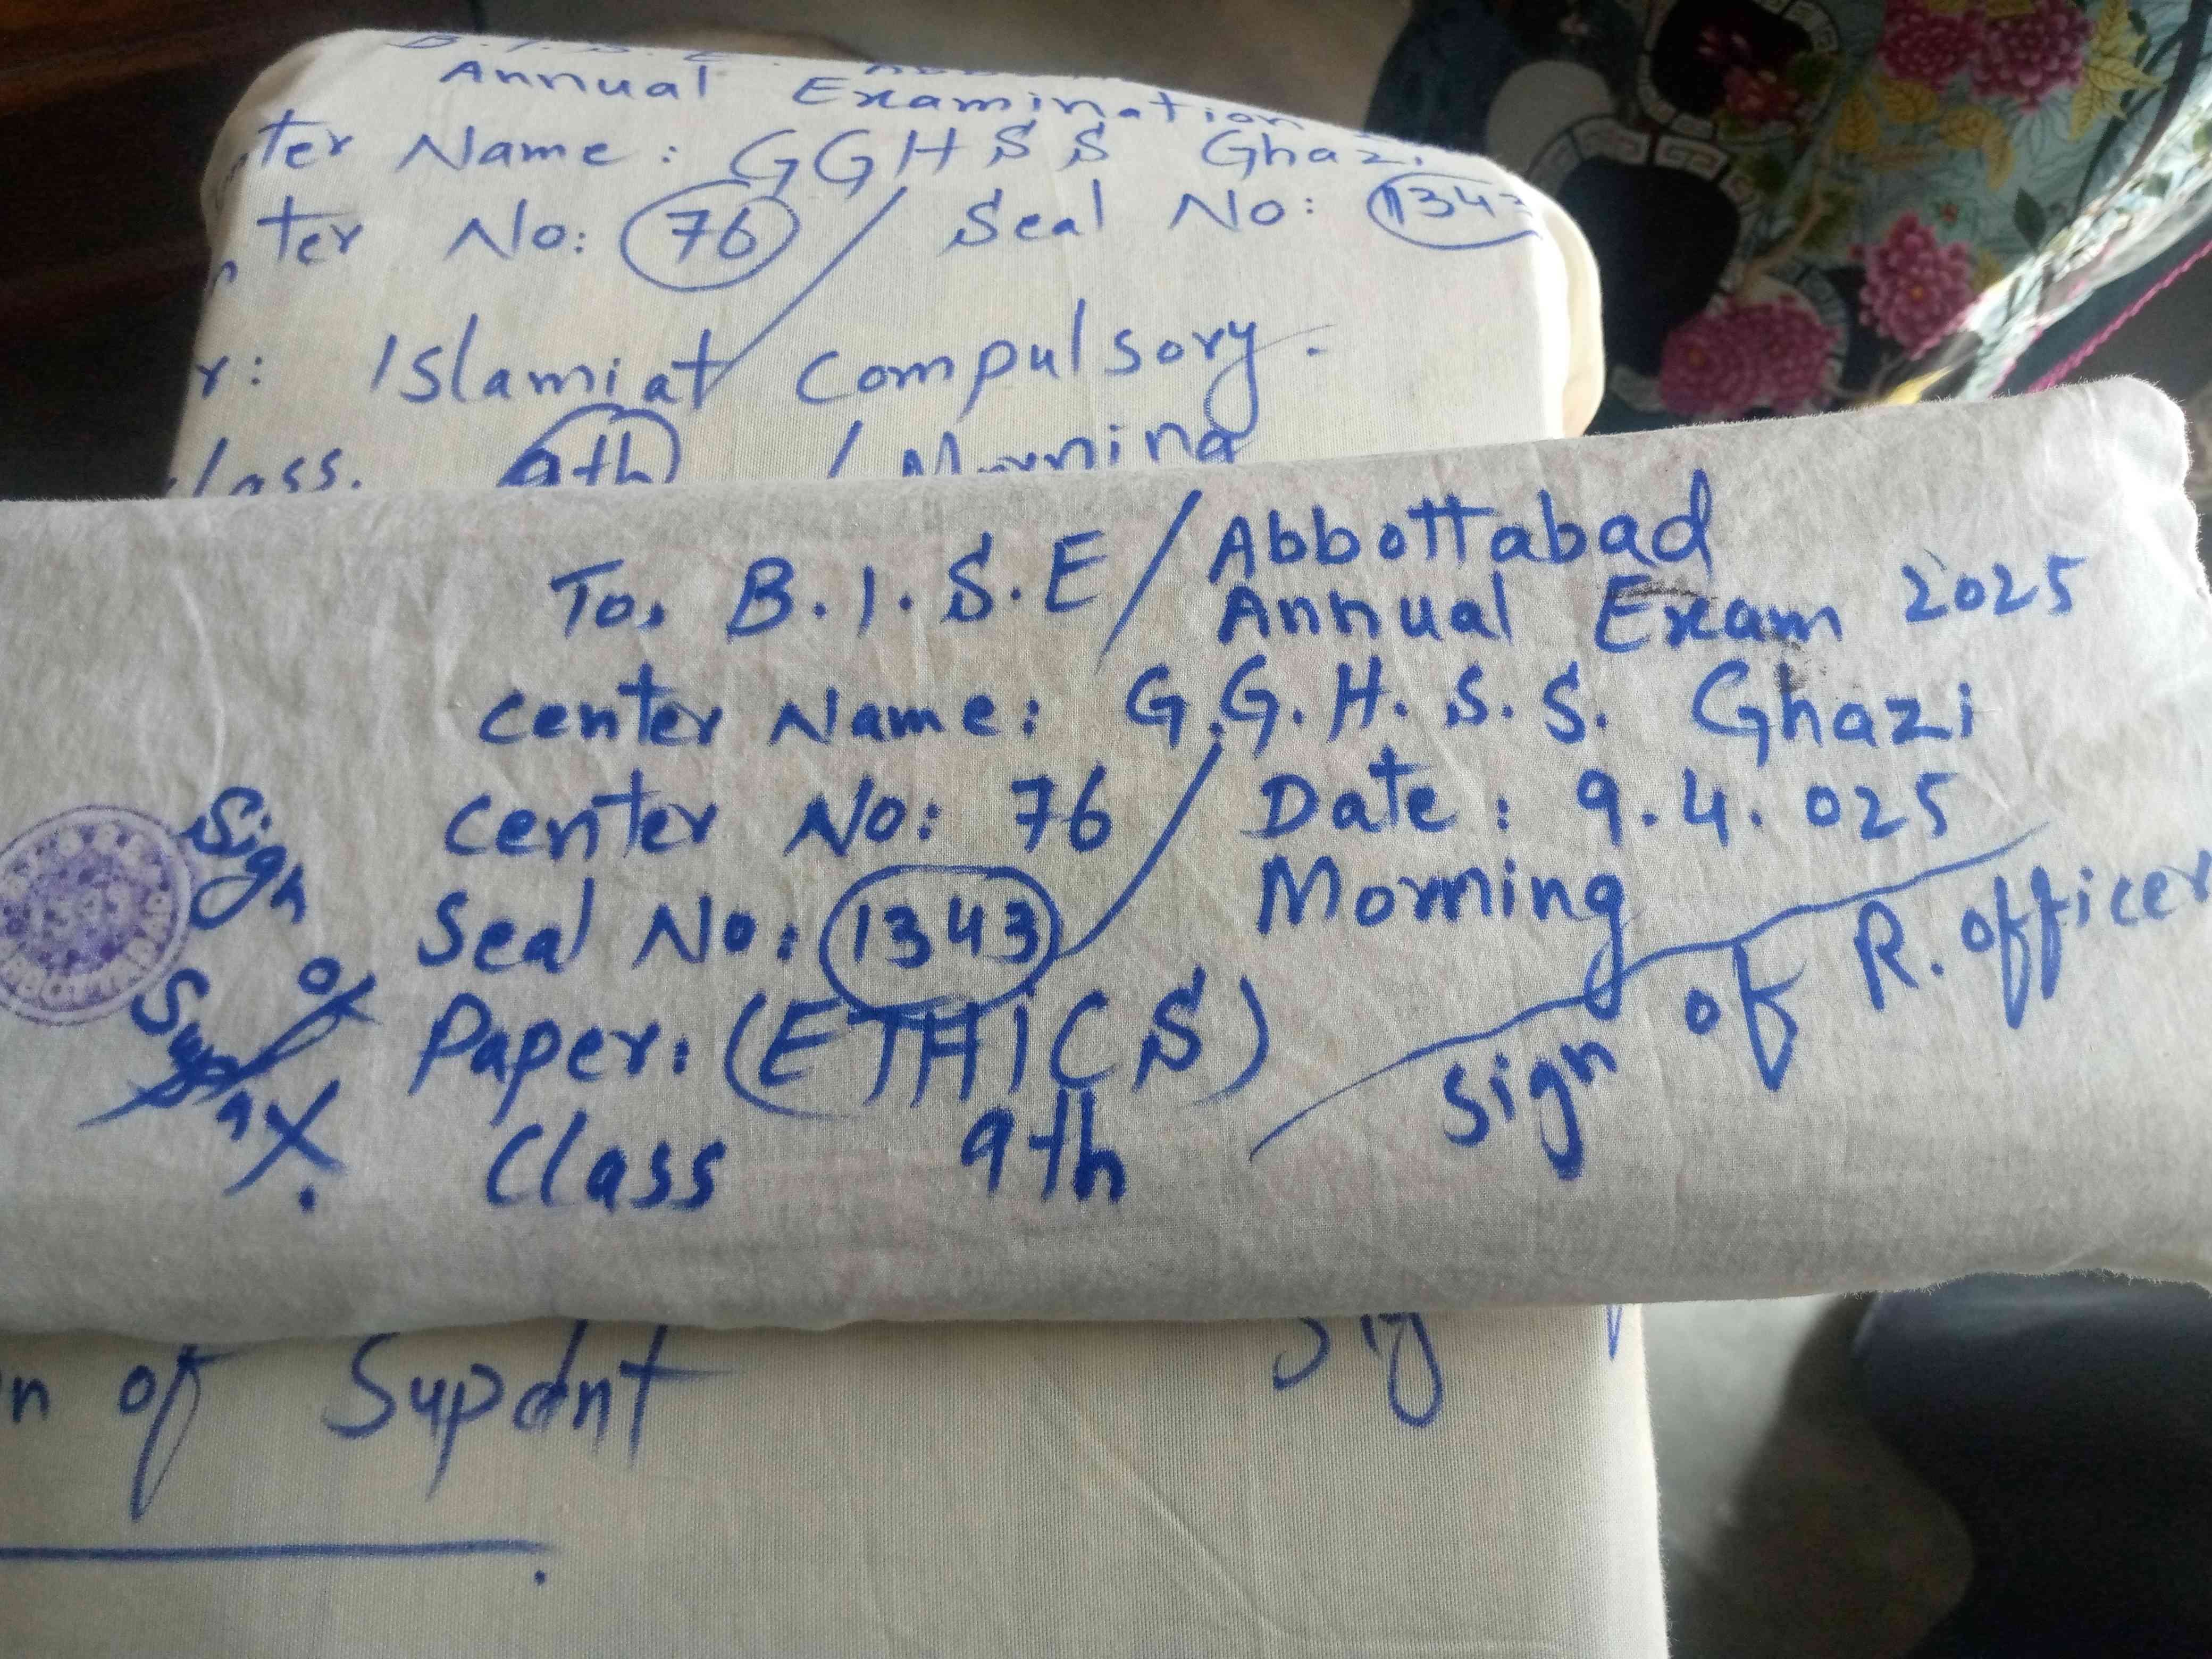 Annual Examination
ter Name: GGHSS Ghazi
ter No: 76 / Seal No: 1343
r: Islamiat Compulsory.
lass. 9th / Morning
To, B.I.S.E / Abbottabad
Annual Exam 2025
Center Name: G.G.H.S.S. Ghazi
Center No: 76 / Date: 9.4.025
Seal No: 1343 Morning
Paper: (ETHICS)
Class 9th
Sign of
Sign of R. officer
n of Supdnt
Sig